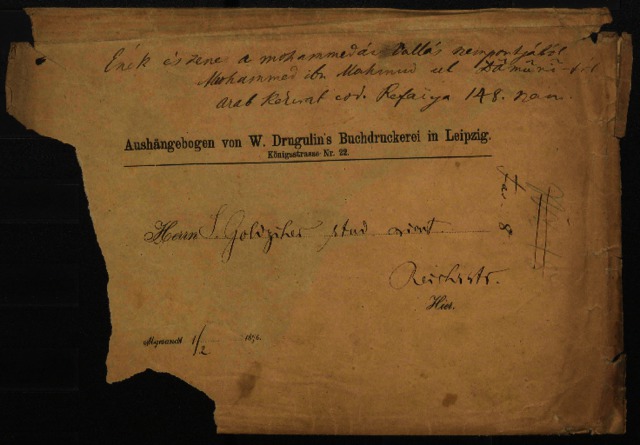 Ének és zene a mohammedán vallás szempontjából
Mohammed ibn Mahmud el
arab kézirat cod. Refaiya 148. szám.
Aushängebogen von W. Drugulin's Buchdruckerei in Leipzig.
Königsstrasse Nr. 22.
Herrn I. Goldziher stud. orient.
8
Reichsstr.
Hier.
Abgesandt 1/2 187